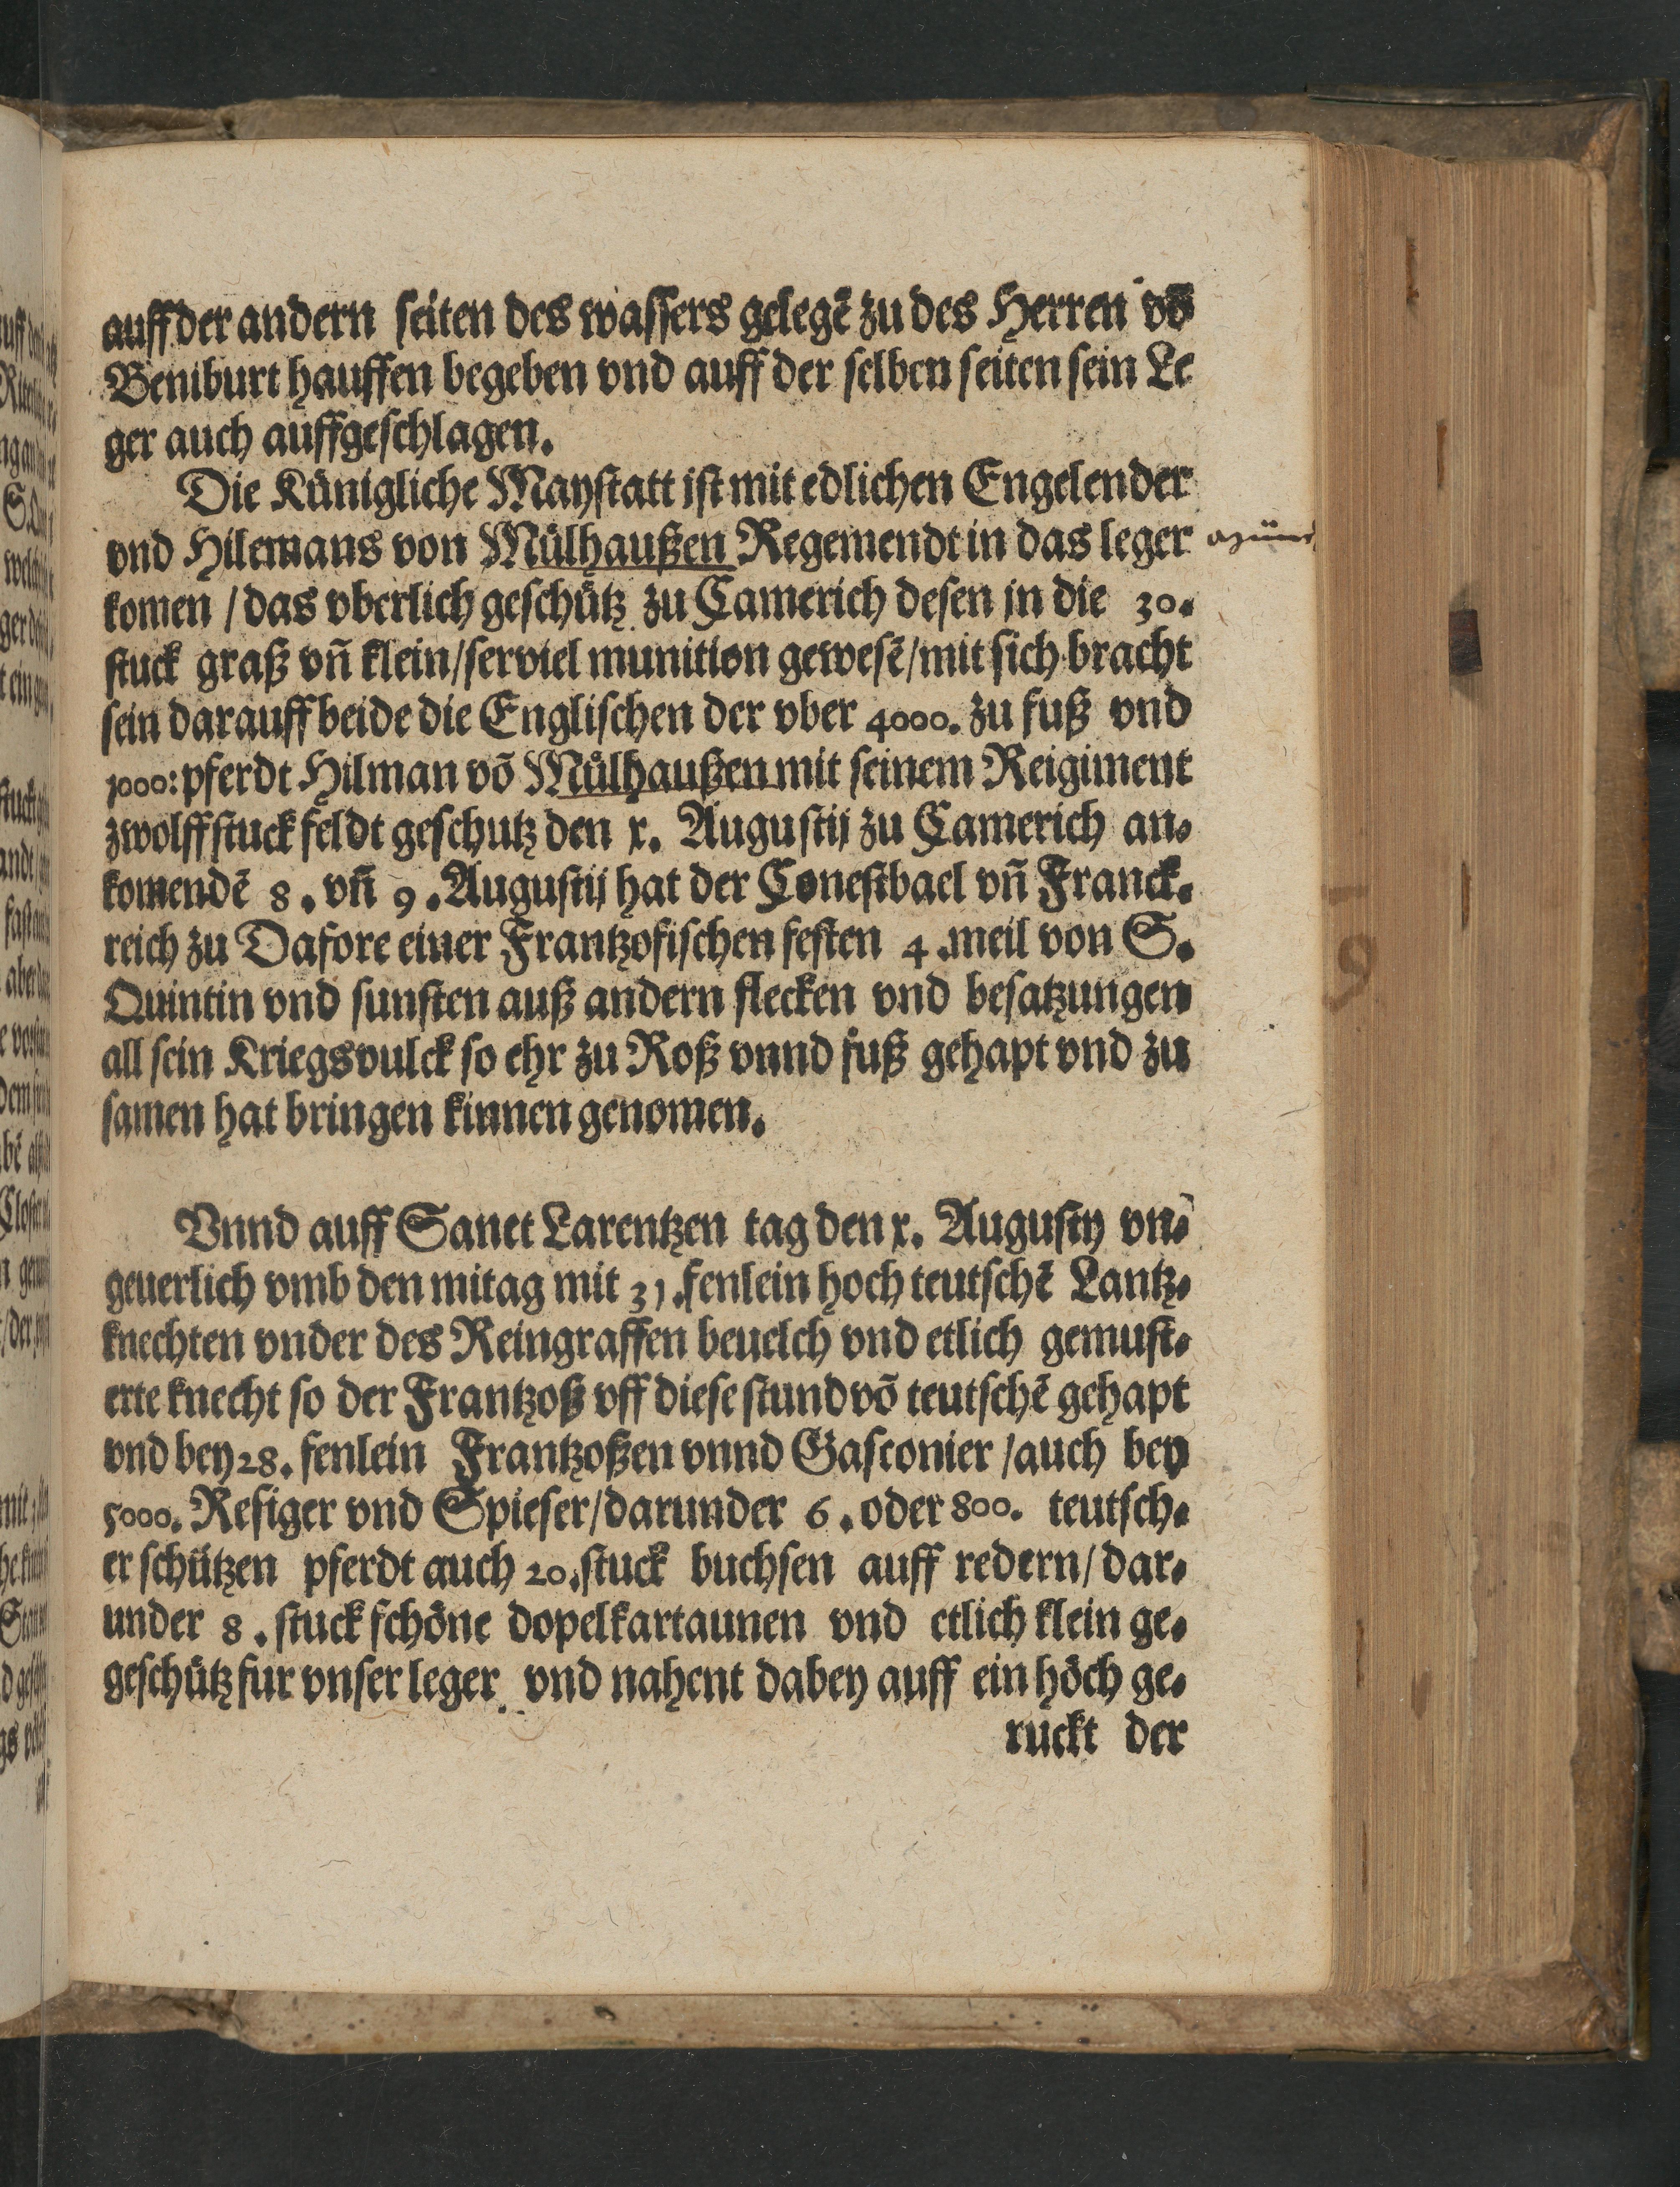 auff der andern seiten des wassers gelegē zu des Herren vō
Beniburt hauffen begeben vnd auff der selben seiten sein Le
ger auch auffgeschlagen.
Die Künigliche Maystatt ist mit edlichen Engelender
vnd Hilemans von Mülhaußen Regemendt in das leger
komen / das vberlich geschütz zu Camerich desen in die 30.
stuck graß vn̄ klein/serviel munition gewesē/mit sich bracht
sein darauff beide die Englischen der vber 4000. zu fuß vnd
1000: pferdt Hilman vō Mülhaußen mit seinem Reigiment
zwolff stuck feldt geschutz den x. Augustij zu Camerich an⸗
komendē 8. vn̄ 9. Augustij hat der Conestbael vn̄ Franck⸗
reich zu Dafore einer Frantzosischen festen 4. meil von S.
Quintin vnd sunsten auß andern flecken vnd besatzungen
all sein Kriegsvulck so ehr zu Roß vnnd fuß gehapt vnd zu
samen hat bringen kinnen genomen.
Vnnd auff Sanct Larentzen tag den x. Augusty vn⸗
geuerlich vmb den mitag mit 31. fenlein hoch teutschē Lantz⸗
knechten vnder des Reingraffen beuelch vnd etlich gemust⸗
erte knecht so der Frantzoß vff diese stund vō teutschē gehapt
vnd bey 28. fenlein Frantzoßen vnnd Gasconier / auch bey
5000. Resiger vnd Spieser/darunder 6. oder 800. teutsch⸗
er schützen pferdt auch 20. stuck buchsen auff redern/dar⸗
under 8. stuck schöne dopelkartaunen vnd etlich klein ge⸗
geschütz fur vnser leger vnd nahent dabey auff ein höch ge⸗
ruckt der